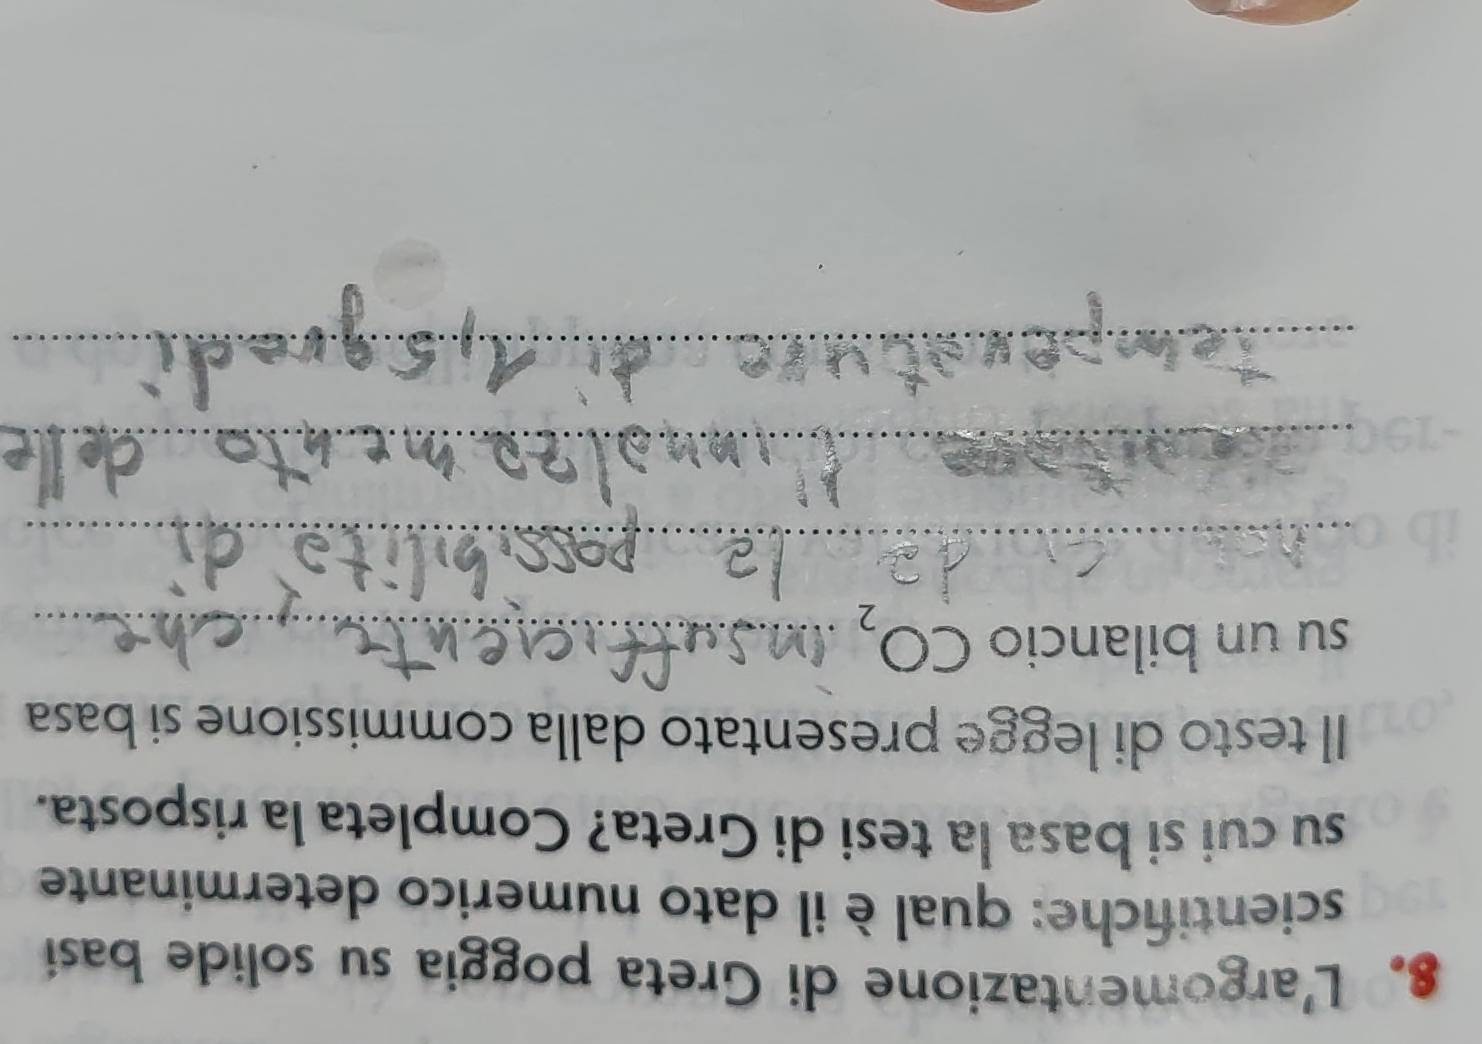 8. L'argomentazione di Greta poggia su solide basi
scientifiche: qual è il dato numerico determinante
su cui si basa la tesi di Greta? Completa la risposta.
Il testo di legge presentato dalla commissione si basa
su un bilancio CO₂ insufficiente, che
non ci dà la possibilità di
l'innalzamento delle
temperature di 1,5 gradi